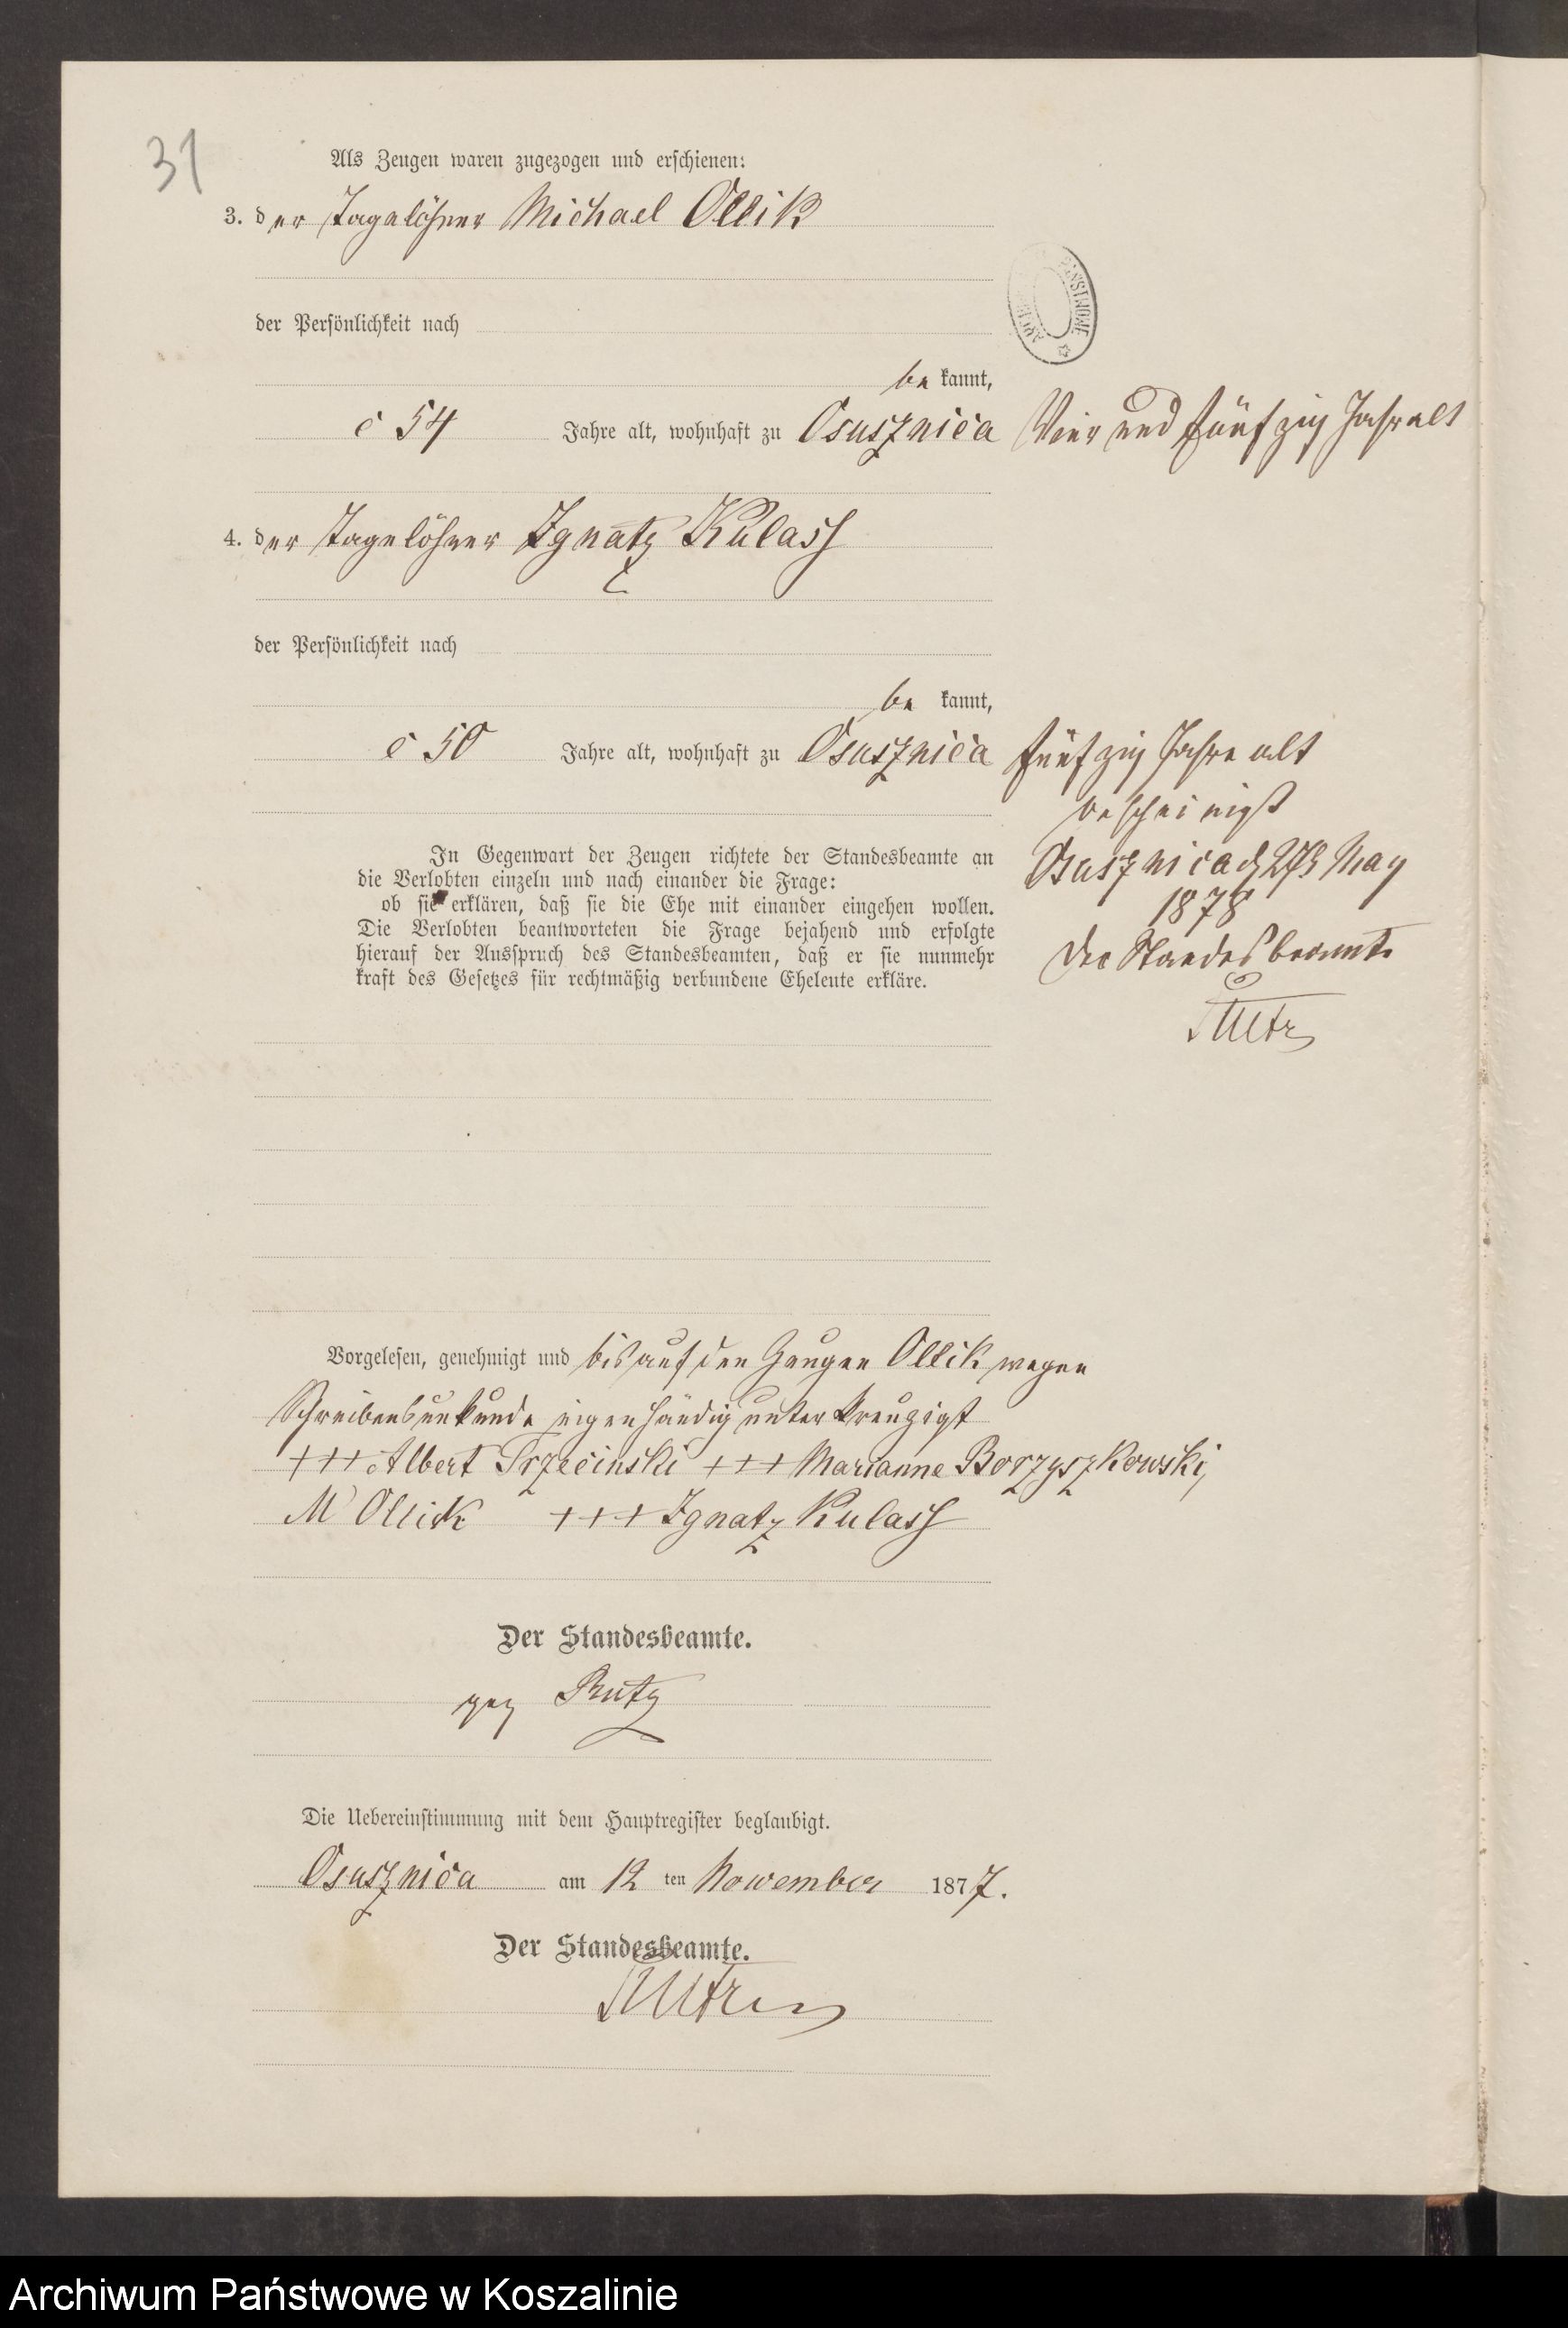 31
Als Zeugen waren zugezogen und erschienen:
3. der Tagelöhner Michael Ollik
der Persönlichkeit nach
be kannt,
c 54 Jahre alt, wohnhaft zu Osusznica Vier und fünfzig Jahr alt
4. der Tagelöhner Ignatz Kulass
der Persönlichkeit nach
be kannt,
c 50 Jahre alt, wohnhaft zu Osusznica fünfzig Jahre alt
bescheinigt
Osusznica d May
1878
Der Standesbeamte
In Gegenwart der Zeugen richtete der Standesbeamte an
die Verlobten einzeln und nach einander die Frage:
ob sie erklären, daß sie die Ehe mit einander eingehen wollen.
Die Verlobten beantworteten die Frage bejahend und erfolgte
hierauf der Ausspruch des Standesbeamten, daß er sie nunmehr
kraft des Gesetzes für rechtmäßig verbundene Eheleute erkläre.
Vorgelesen, genehmigt und bis auf den Zeugen Ollik wegen
Schreibensunkunde eigenhändig unterkreuzigt
+++ Albert Trzecinski +++ Marianne Borzyszkowski,
M Ollik +++ Ignatz Kulass
Der Standesbeamte.
gez Rutz
Die Uebereinstimmung mit dem Hauptregister beglaubigt.
Osusznica am 12 ten Nowember 1877.
Der Standesbeamte.
Archiwum Państwowe w Koszalinie